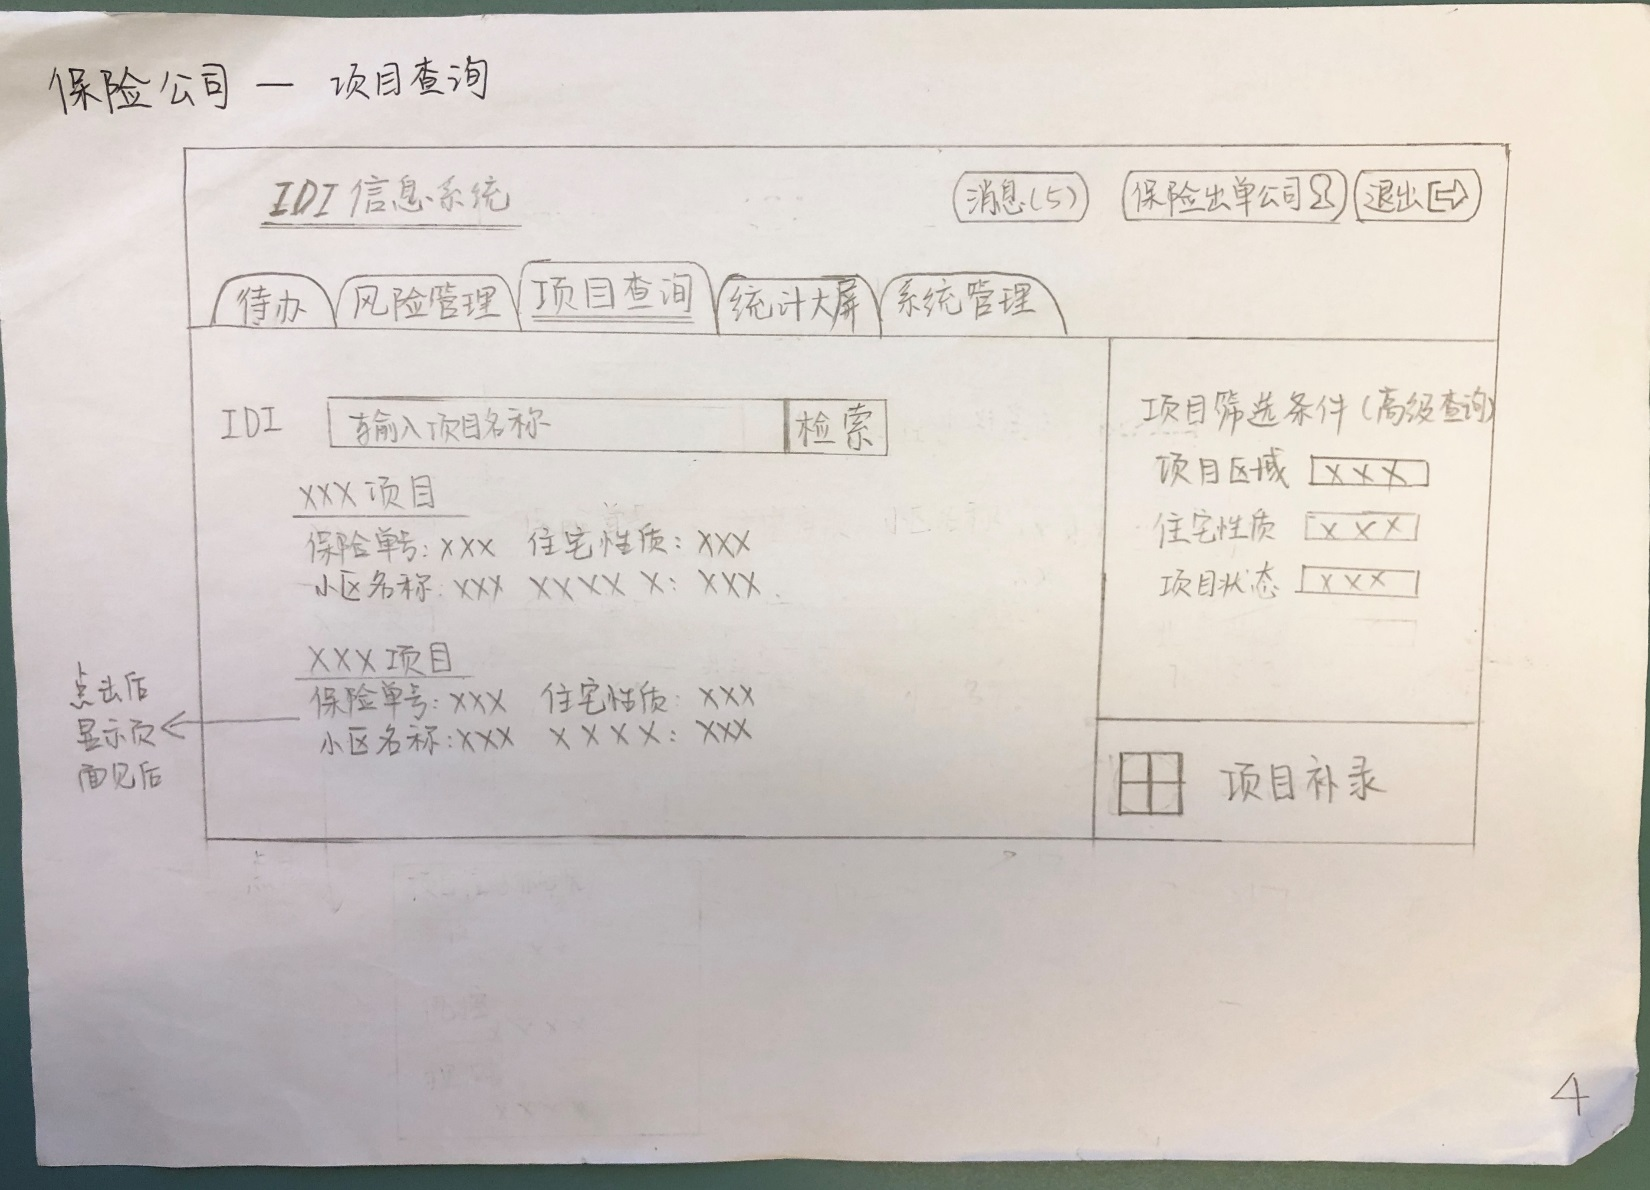 保险公司 — 项目查询
IDI 信息系统
消息(5)
保险出单公司
退出
待办
风险管理
项目查询
统计大屏
系统管理
IDI
输入项目名称
检索
XXX 项目
保险单号: XXX 住宅性质: XXX
小区名称: XXX XXXX X: XXX
XXX 项目
保险单号: XXX 住宅性质: XXX
小区名称: XXX XXXX: XXX
点击后
显示页
面见后
项目筛选条件(高级查询)
项目区域 XXX
住宅性质 XXX
项目状态 XXX
项目补录
4